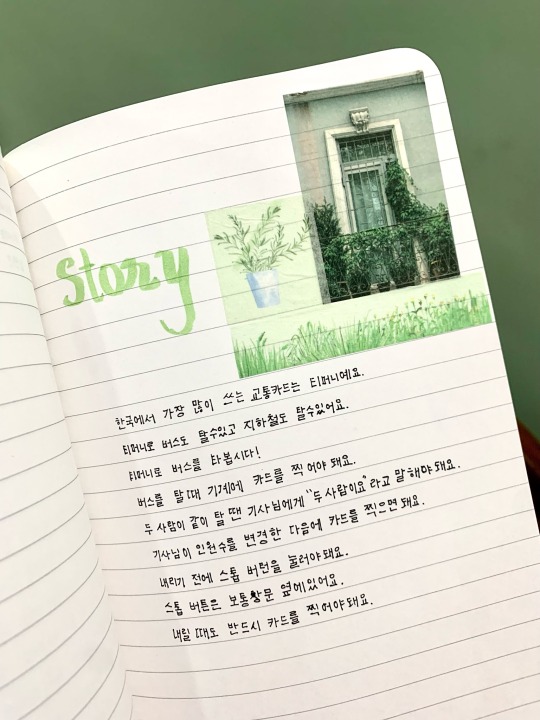 story
한국에서 가장 많이 쓰는 교통카드는 티머니예요.
티머니로 버스도 탈수있고 지하철도 탈수있어요.
티머니로 버스를 타봅시다!
버스를 탈때 기계에 카드를 찍어야 돼요.
두 사람이 같이 탈 땐 기사님에게 "두 사람이요"라고 말해야 돼요.
기사님이 인원수를 변경한 다음에 카드를 찍으면 돼요.
내리기 전에 스톱 버턴을 눌러야 돼요.
스톱 버튼은 보통 창문 옆에 있어요.
내릴 때도 반드시 카드를 찍어야 돼요.